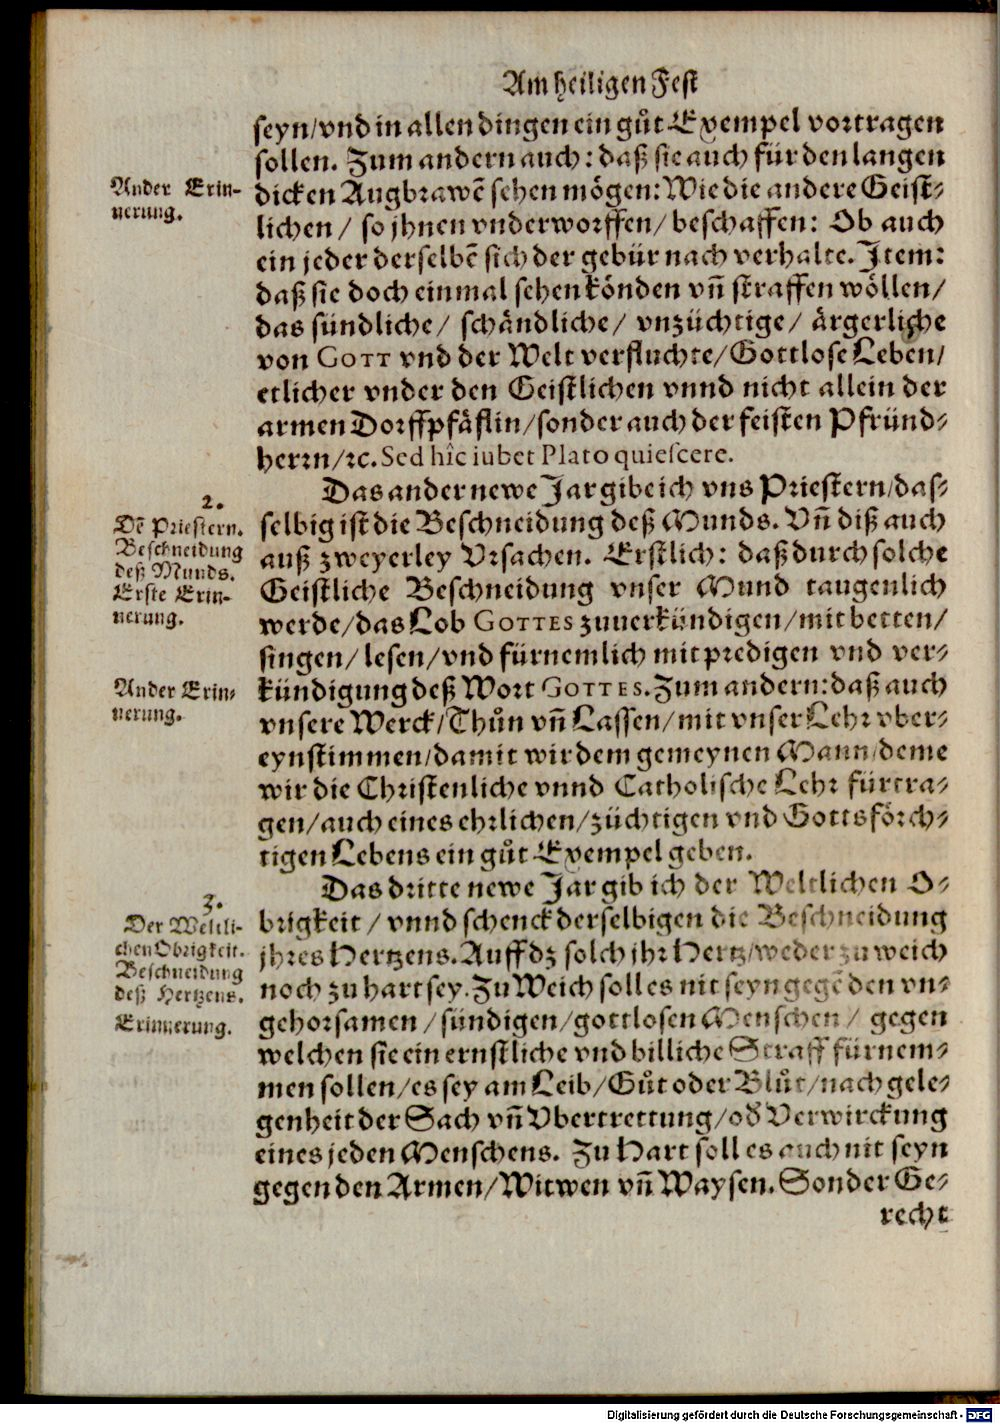 Am heiligen Fest
seyn/vnd in allen dingen ein gůt Exempel vortragen
sollen. Zum andern auch: daß sie auch für den langen
Ander Erin-
nerung.
dicken Augbrawē sehen mögen: Wie die andere Geist-
lichen / so jhnen vnderworffen/ beschaffen: Ob auch
ein jeder derselbē sich der gebür nach verhalte. Item:
daß sie doch einmal sehen könden vñ straffen wöllen/
das sündliche/ schändliche/ vnzüchtige/ ärgerliche
von GOTT vnd der Welt verfluchte/Gottlose Leben/
etlicher vnder den Geistlichen vnnd nicht allein der
armen Dorffpfäflin/sonder auch der feisten Pfründ-
herrn/ꝛc. Sed hîc iubet Plato quiescere.
2.
Dē Priestern.
Beschneidung
deß Munds.
Erste Erin-
nerung.
Das ander newe Jar gibe ich vns Priestern/das-
selbig ist die Beschneidung deß Munds. Vñ diß auch
auß zweyerley Vrsachen. Erstlich: daß durch solche
Geistliche Beschneidung vnser Mund taugenlich
werde/das Lob GOTTES zuuerkündigen/mit betten/
singen/ lesen/vnd fürnemlich mit predigen vnd ver-
Ander Erin-
nerung.
kündigung deß Wort GOTTES. Zum andern: daß auch
vnsere Werck/Thůn vñ Lassen/mit vnser Lehr vber-
eynstimmen/damit wir dem gemeynen Mann/deme
wir die Christenliche vnnd Catholische Lehr fürtra-
gen/auch eines ehrlichen/züchtigen vnd Gottsförch-
tigen Lebens ein gůt Exempel geben.
3.
Der Weltli-
chen Obrigkeit.
Beschneidung
deß Hertzens.
Erinnerung.
Das dritte newe Jar gib ich der Weltlichen O-
brigkeit / vnnd schenck derselbigen die Beschneidung
jhres Hertzens. Auff dz solch jhr Hertz/weder zu weich
noch zu hart sey. Zu Weich soll es nit seyn gegē den vn-
gehorsamen /sündigen/gottlosen Menschen/ gegen
welchen sie ein ernstliche vnd billiche Straff fürnem-
men sollen/es sey am Leib/Gůt oder Blůt/nach gele-
genheit der Sach vñ Vbertrettung/od' Verwirckung
eines jeden Menschens. Zu Hart soll es auch nit seyn
gegen den Armen/Witwen vñ Waysen. Sonder Ge-
recht
Digitalisierung gefördert durch die Deutsche Forschungsgemeinschaft - DFG